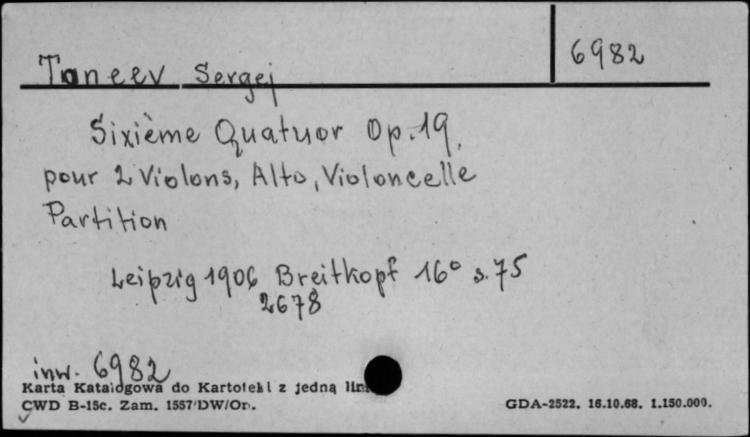 Taneev Sergej 6982
Sixième Quatuor Op. 19,
pour 2 Violons, Alto, Violoncelle
Partition
Leipzig 1906 Breitkopf 16° s. 75
2678
inw. 6982
Karta Katalogowa do Kartoteki z jedną
CWD B-15c. Zam. 1557/DW/Or. GDA-2522. 16.10.68. 1.150.000.